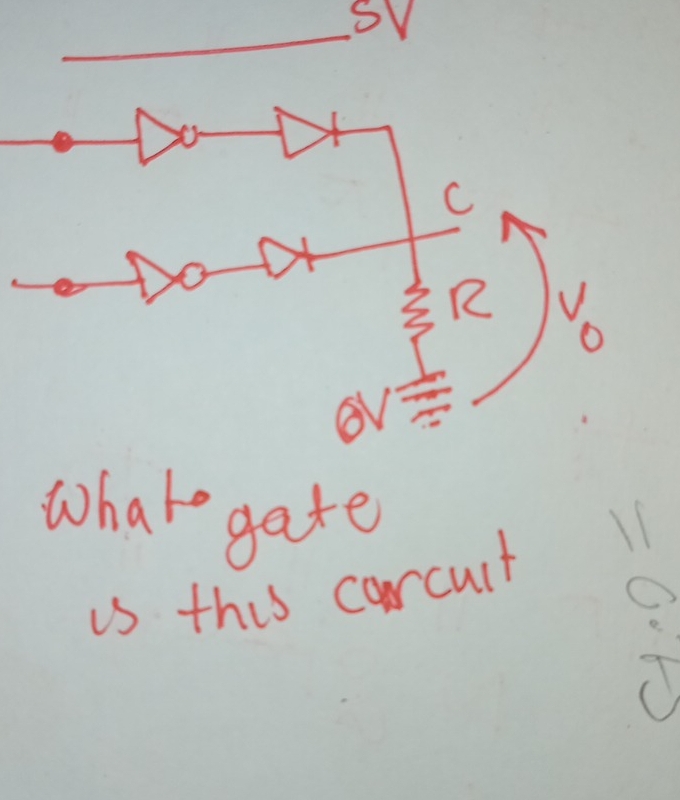 5V
C
R
Vo
0V
What gate
is this carcuit
= 0.5